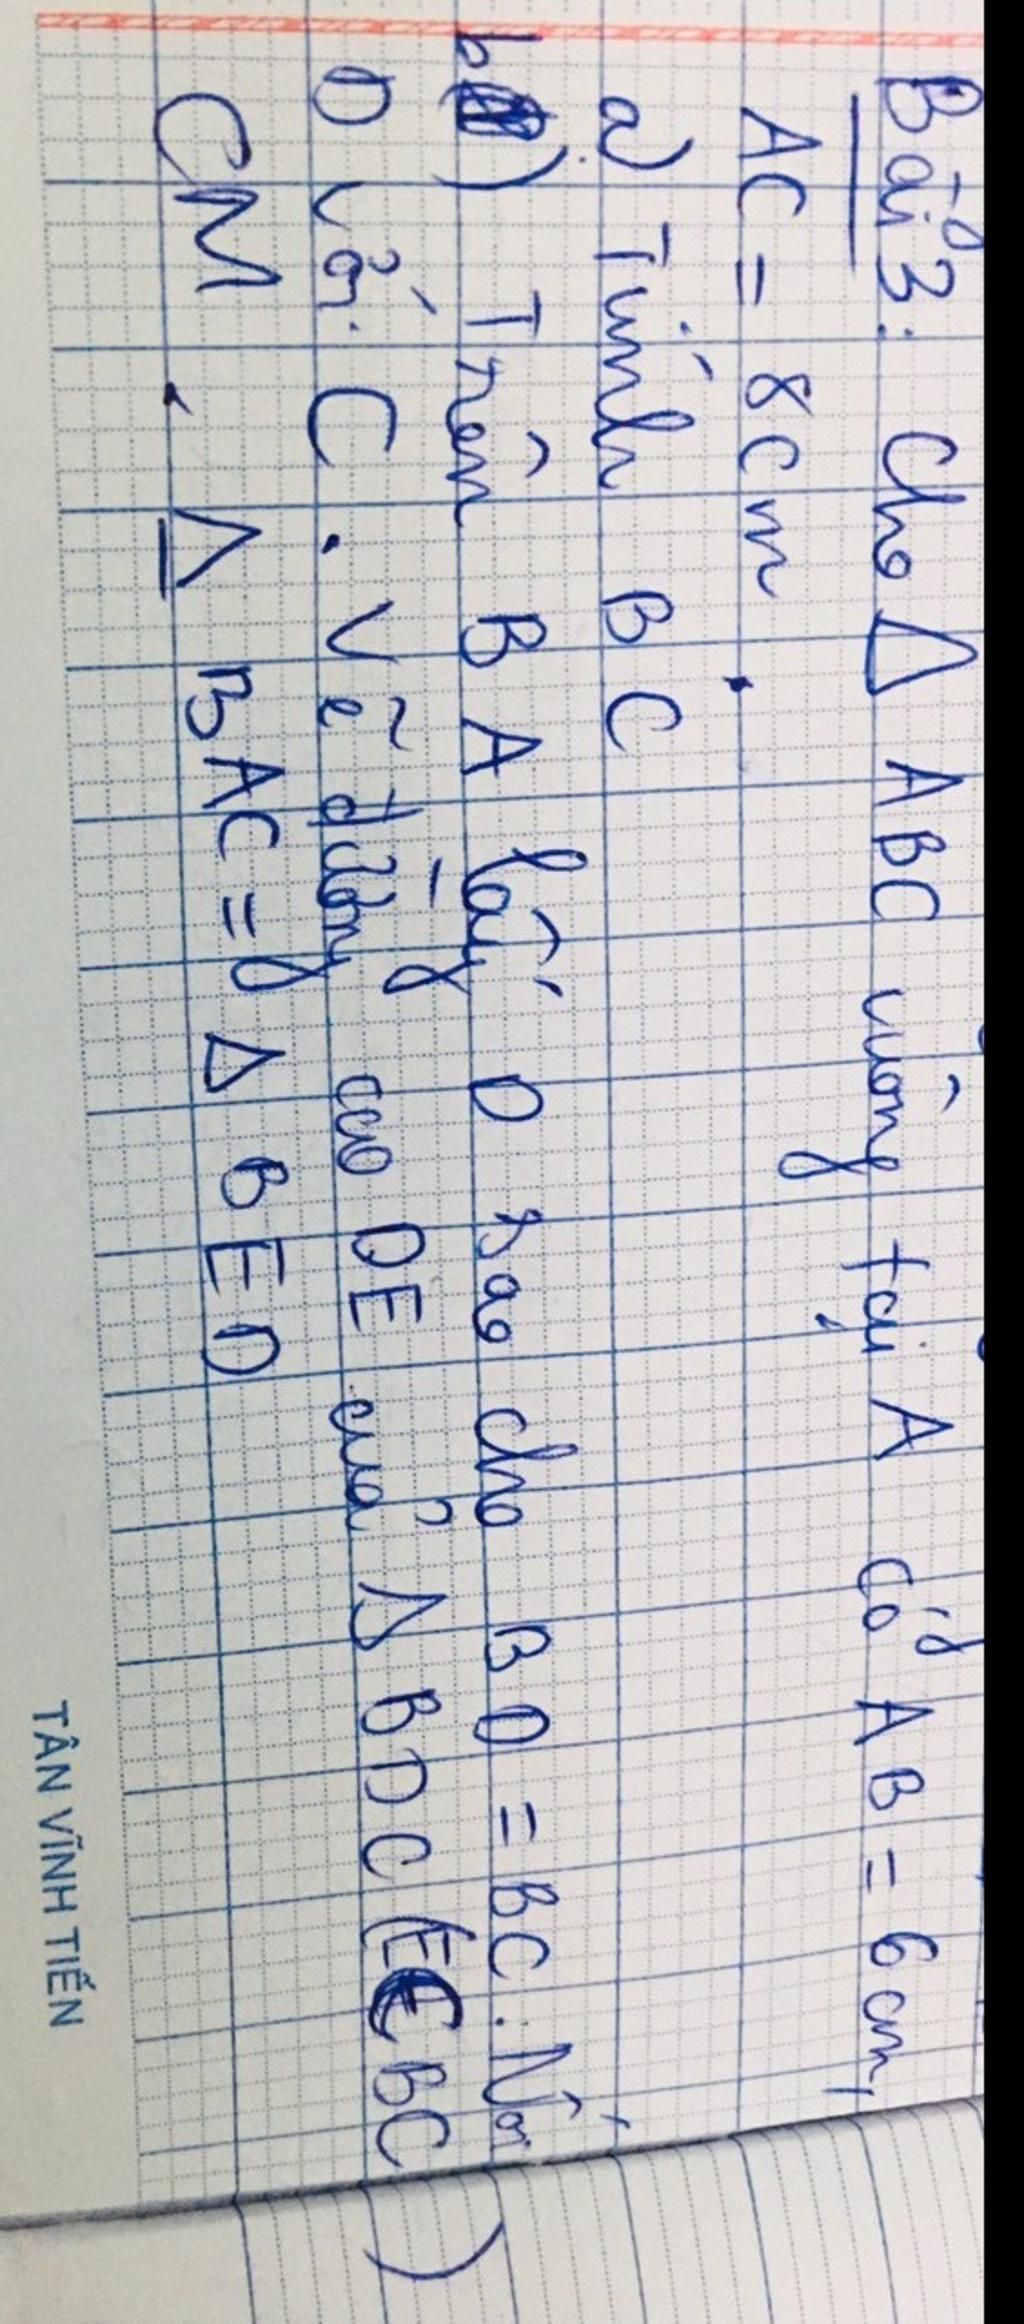 Bài 3: Cho Δ ABC vuông tại A có AB = 6cm,
AC = 8cm.
a) Tính BC
b) Trên BA lấy D sao cho BD = BC. Nối
D với C. Vẽ đường cao DE của Δ BDC (E ∈ BC)
CM. Δ BAC = Δ BED
TÂN VĨNH TIẾN